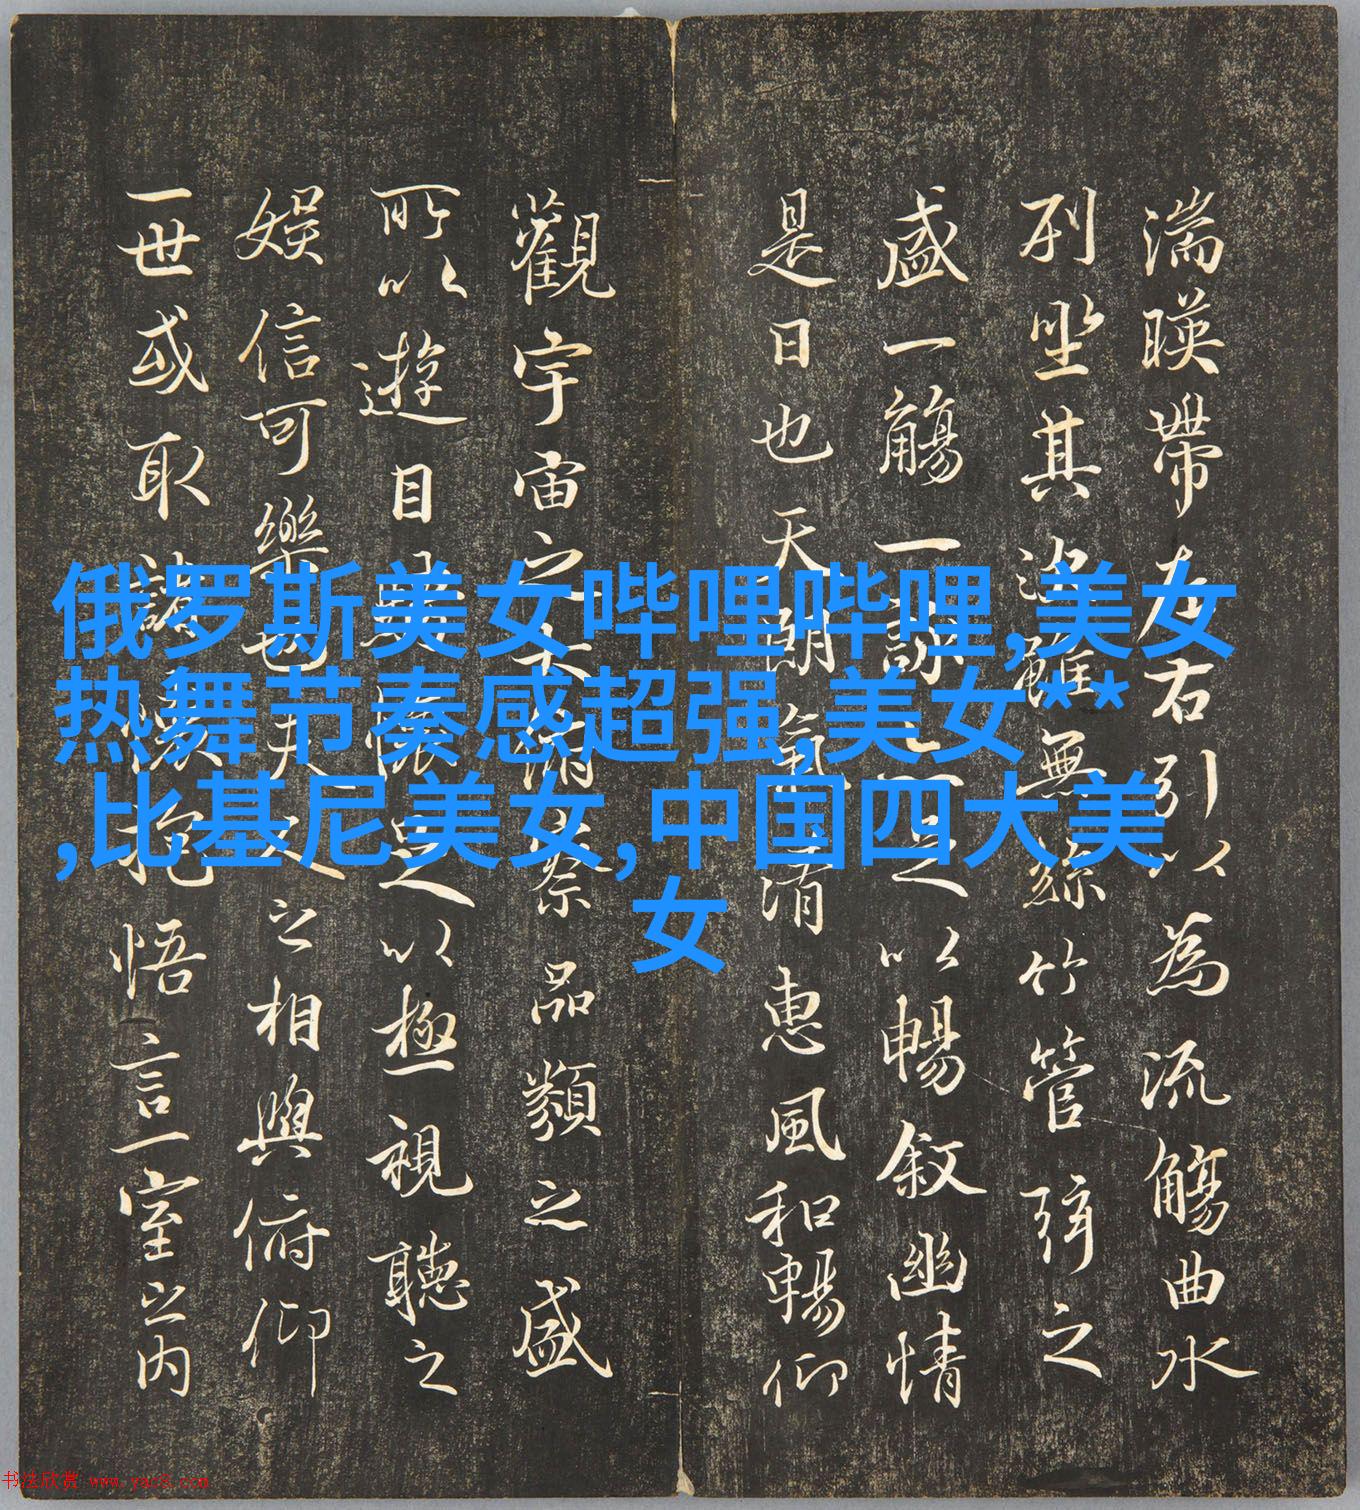 湍暎帶左右引以為流觴曲水
列坐其次雖無絲竹管弦之
盛一觴一詠亦足以暢敘幽情
是日也天朗氣清惠風和暢仰
觀宇宙之大俯察品類之盛
所以遊目騁懷足以極視聽之
娛信可樂也夫人之相與俯仰
一世或取諸懷抱悟言一室之内
俄罗斯美女哔哩哔哩,美女
热舞节奏感超强,美女**
,比基尼美女,中国四大美
女
书法欣赏 www.yac8.com